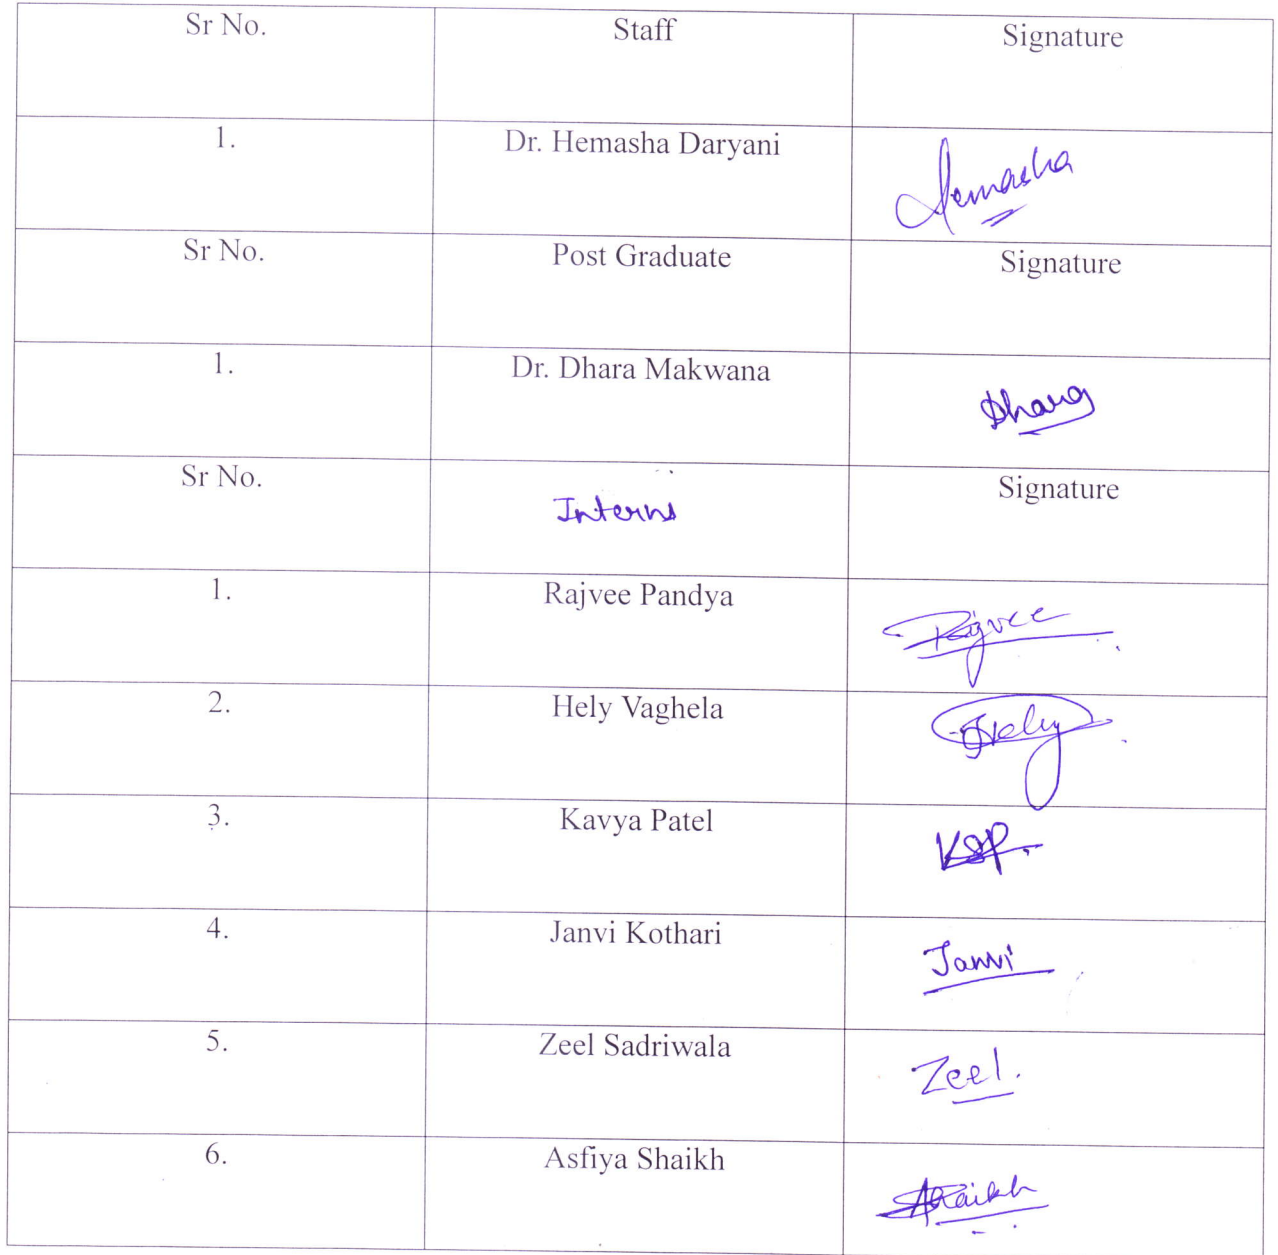 Sr No. Staff Signature
1. Dr. Hemasha Daryani Hemasha
Sr No. Post Graduate Signature
1. Dr. Dhara Makwana Dhara
Sr No. Interns Signature
1. Rajvee Pandya Rajvee
2. Hely Vaghela Hely
3. Kavya Patel KSP.
4. Janvi Kothari Janvi
5. Zeel Sadriwala Zeel.
6. Asfiya Shaikh